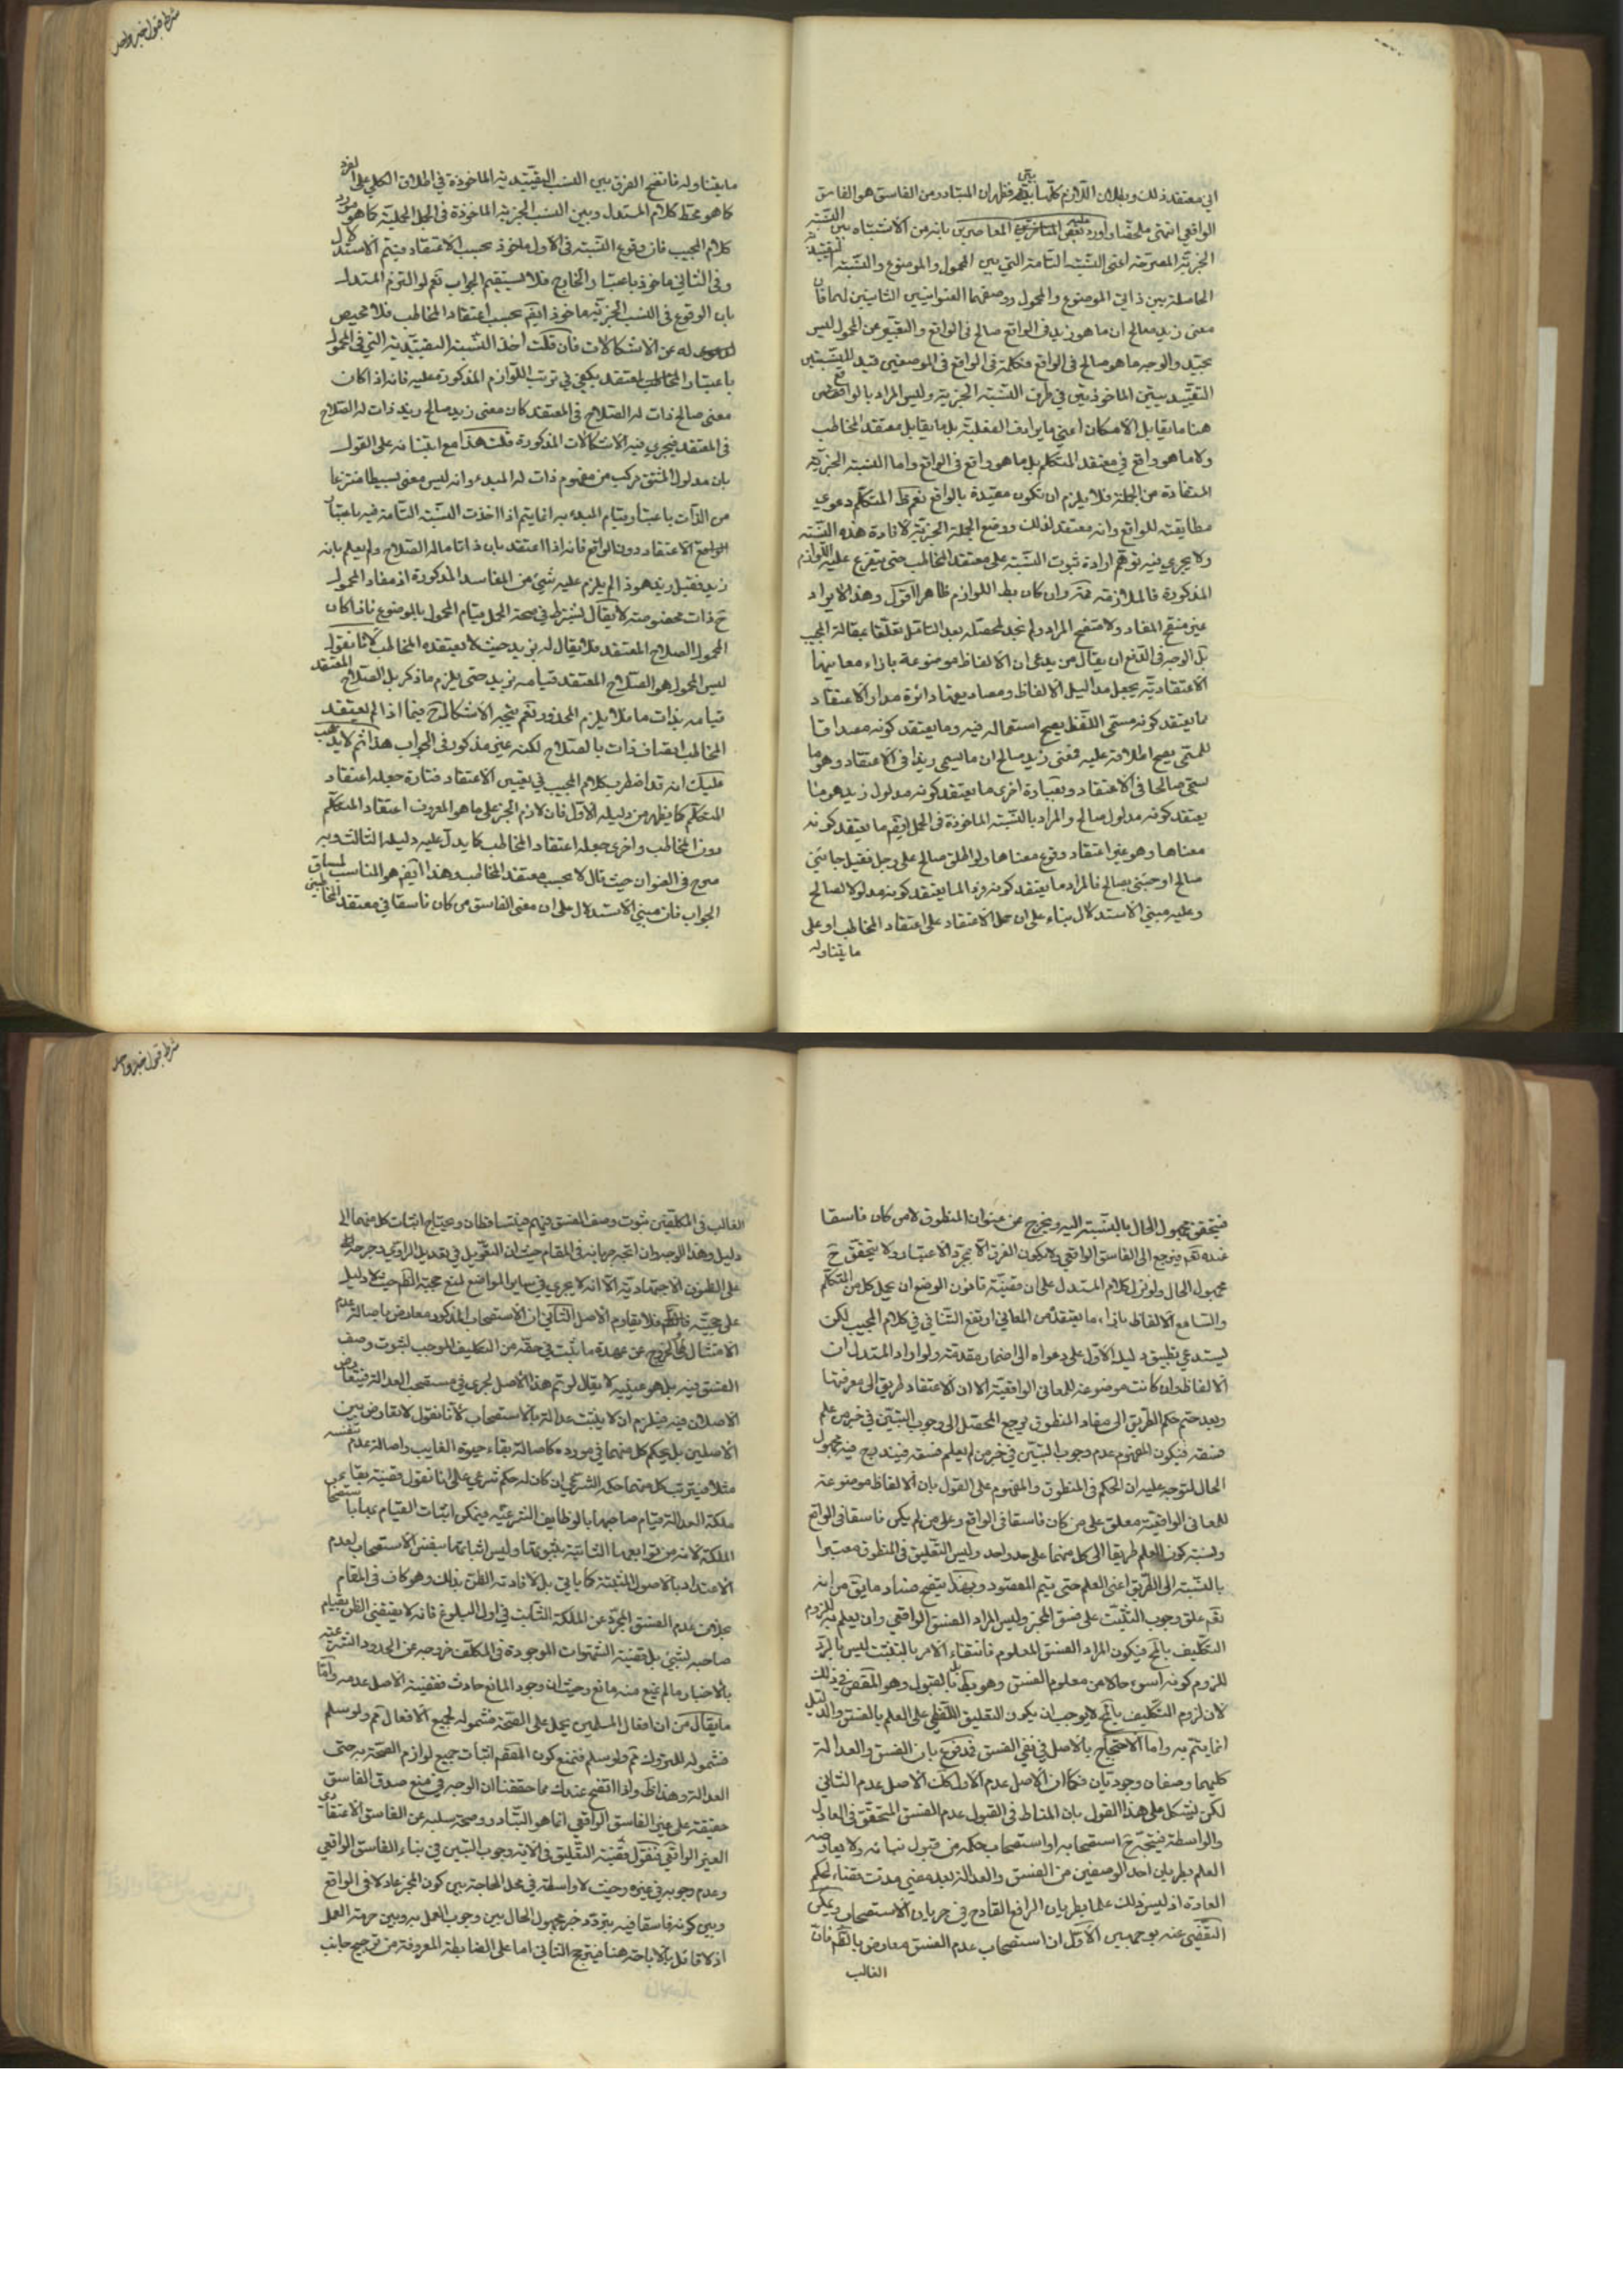 الى معتقد ذلك وبطلان اللازم كلتا يقيني فظهر ان المتبادر من الفاسق هو الفاسق
الواقعي انتهى ملخصا واورد عليه بعض المعاصرين بانه من الاشتباه بين النسبة
الخبرية المصرحة اعنى النسبة التامة التي بين المحمول والموضوع والنسبة التقييدية
الحاصلة بين ذاتي الموضوع والمحمول ووصفهما العنوانيين الثابتين لهما فان
معنى زيد صالح ان ما هو زيد في الواقع صالح في الواقع والتعبير عن المحمول ليس
بجيد والوجه ما هو صالح في الواقع فكلمة في الواقع في الموضعين قيد للنسبتين
التقييديتين الماخوذتين في طرف النسبة الخبرية وليس المراد بالواقع
هنا ما يقابل الامكان اعني ما يرادف الفعلية بل ما يقابل معتقد المخاطب
ولا ما هو واقع في معتقد المتكلم بل ما هو واقع في الواقع واما النسبة الخبرية
المستفادة من الجملة فلا يلزم ان تكون مقيدة بالواقع نعم المتكلم دعوى
مطابقته للواقع وانه معتقد لذلك ووضع الجملة الخبرية لافادة هذه النسبة
ولا يجري فيه توهم ارادة ثبوت النسبة على معتقد المخاطب حتى يتفرع عليه اللوازم
المذكورة فالملازمة وان كان بط اللوازم ظاهرا اقول وهذا الايراد
غير منقح المفاد ولا متضح المراد ولم نجد لمحصله بعد التامل تعلقا بمقالة المجيب
بل الوجه في الدفع ان يقال من يدعي ان الالفاظ موضوعة بازاء معانيها
الاعتقادية يجعل مداليل الالفاظ ومصاديقها دائرة مدار الاعتقاد
فما يعتقد كونه مسمى اللفظ يصح استعماله فيه وما يعتقد كونه مصداقا
للمسمى يصح اطلاقه عليه فمعنى زيد صالح ان ما يسمى زيدا في الاعتقاد وهو ما
يسمى صالحا في الاعتقاد وبعبارة اخرى ما يعتقد كونه مدلول زيد هو ما
يعتقد كونه مدلول صالح والمراد بالنسبة الماخوذة في الحمل ايضا ما يعتقد كونه
معناها وهو غير اعتقاد وقوع معناها ولو اطلق صالح على رجل فقيل جائني
صالح او جئني بصالح فالمراد ما يعتقد كونه فردا لما يعتقد كونه مدلولا لصالح
وعليه مبنى الاستدلال بناء على ان حمل الاعتقاد على اعتقاد المخاطب او على
ما يتناوله
شرط قبول خبر واحد
ما يتناوله فاتضح الفرق بين النسب التقييدية الماخوذة في اطلاق الكلي على الفرد
كما هو محط كلام المستدل وبين النسب الخبرية الماخوذة في الجمل الحملية كما هو مورد
كلام المجيب فان وقوع النسبة في الاول ماخوذ بحسب الاعتقاد فيتم الاستدلال
وفي الثاني ماخوذ باعتبار الخارج فلا يستقيم الجواب نعم لو التزم المستدل
بان الوقوع في النسب الخبرية ماخوذ ايضا بحسب اعتقاد المخاطب فلا محيص
له عن الاشكالات فان قلت اخذ النسبة التقييدية التي في المحمول
باعتبار المخاطب المعتقد يكفي في ترتب اللوازم المذكورة عليه فانه اذا كان
معنى صالح ذات له الصلاح في المعتقد كان معنى زيد صالح زيد ذات له الصلاح
في المعتقد فيجري فيه الاشكالات المذكورة قلت هذا مع ابتنائه على القول
بان مدلول المشتق مركب من مفهوم ذات له المبدء وانه ليس معنى بسيطا منتزعا
من الذات باعتبار قيام المبدء به انما يتم اذا اخذت النسبة التامة فيه باعتبار
الاعتقاد دون الواقع فانه اذا اعتقد بان ذاتا ما له الصلاح ولم يعلم بانه
زيد فقيل زيد هو ذا لم يلزم عليه شيء من المفاسد المذكورة اذ مفاد المحمول
ح ذات مخصوصة لا يقال يشترط في صحة الحمل قيام المحمول بالموضوع فاذا كان
المحمول الصلاح المعتقد فلا يقال له بزيد حيث لا يعتقده المخاطب لانا نقول
ليس المحمول هو الصلاح المعتقد قيامه بزيد حتى يلزم ما ذكر بل الصلاح المعتقد
قيامه بذات ما فلا يلزم المحذور نعم يتجه الاشكال ح فيما اذا لم يعتقد
المخاطب اتصاف ذات بالصلاح لكنه غير مذكور في الجواب هذا ثم لا يذهب
عليك انه قد اضطرب كلام المجيب في تعيين الاعتقاد فتارة جعله اعتقاد
المتكلم كما يظهر من دليله الاول فان لازم الخبر على ما هو المعروف اعتقاد المتكلم
دون المخاطب واخرى جعله اعتقاد المخاطب كما يدل عليه دليله الثالث وبه
صرح في العنوان حيث قال لا بحسب معتقد المخاطب وهذا ايضا هو المناسب لمساق
الجواب فان مبنى الاستدلال على ان معنى الفاسق من كان فاسقا في معتقد المخاطبين
فيتحقق مجهول الحال بالنسبة اليه ويخرج عن عنوان المنطوق لا من كان فاسقا
عنده نعم يرجع الى الفاسق الواقعي ولا يكون الفرق الا بمجرد الاعتبار ولا يتحقق ح
مجهول الحال ولو نزل كلام المستدل على ان قضية قانون الوضع ان يحمل كل من المتكلم
والسامع الالفاظ بازاء ما يعتقده من المعاني ارتفع التنافي في كلام المجيب لكن
يستدعي تطبيق دليله الاول على دعواه الى اضمار مقدمة ولو اراد المستدل ان
الالفاظ وان كانت موضوعة للمعاني الواقعية الا ان الاعتقاد طريق الى معرفتها
وبعد ضم حكم الطريق الى مفاد المنطوق يرجع المحصل الى وجوب التبين في خبر من علم
فسقه فيكون المفهوم عدم وجوب التبين في خبر من لم يعلم فسقه فيندرج فيه مجهول
الحال لتوجه عليه ان الحكم في المنطوق والمفهوم على القول بان الالفاظ موضوعة
للمعاني الواقعية معلق على من كان فاسقا في الواقع وعلى من لم يكن فاسقا في الواقع
ونسبة كون العلم طريقا الى كل منهما على حد واحد وليس التعليق في المنطوق معتبرا
بالنسبة الى الطريق اعني العلم حتى يتم المقصود وبهذا يتضح فساد ما يق من انه
نعم علق وجوب التثبت على فسق المخبر وليس المراد الفسق الواقعي وان يعلم به للزوم
التكليف بالمح فيكون المراد الفسق المعلوم فانتفاء الامر بالتثبت ليس بالرد
للزوم كونه اسوء حالا من معلوم الفسق وهو بط بل بالقبول وهو المقصود في ذلك
لان لزوم التكليف بالمح لا يوجب ان يكون التعليق اللفظي على العلم بالفسق والدليل
انما يتم به واما الاحتجاج بالاصل في نفي الفسق فمدفوع بان الفسق والعدالة
كليهما وصفان وجوديان فكما ان الاصل عدم الاول كك الاصل عدم الثاني
لكن يشكل على هذا القول بان المناط في القبول عدم الفسق المتحقق في العادل
والواسطة فيتجه ح استصحابه او استصحاب حكمه من قبول نبائه ولا يعارضه
العلم بطريان احد الوصفين من الفسق والعدالة بعد مضي مدة بقضاء حكم
العادة اذ ليس ذلك علما بطريان الرافع القادح في جريان الاستصحاب ويمكن
التفصي عنه بوجهين الاول ان استصحاب عدم الفسق معارض بالظهر فان
الغالب
شرط قبول خبر واحد
الغالب في المكلفين ثبوت وصف الفسق فيهم فيتساقطان ويحتاج اثبات كل منهما الى
دليل وهذا الوجه وان اتجه جريانه في المقام حيث ان التعويل في تعديل الراوي وجرحه
على الظنون الاجتهادية الا انه لا يجري في ساير المواضع لمنع حجية الظهر حيث لا دليل
على حجيته فلا يقاوم الاصل الثاني ان الاستصحاب المذكور معارض باصالة عدم
الامتثال والخروج عن عهدة ما ثبت في حقه من التكليف الموجب لثبوت وصف
الفسق فيه بل هو عينه لا يقال لو تم هذا الاصل لجرى في مستصحب العدالة فيتعارض
الاصلان فيه فيلزم ان لا يثبت عدالته بالاستصحاب لانا نقول لا تعارض بين
الاصلين بل يحكم كل منهما في مورده كاصالة بقاء حيوة الغايب واصالة عدم تنفسه
مثلا فيترتب كل منهما حكمه الشرعي ان كان له حكم شرعي على انا نقول قضية بقاء
ملكة العدالة قيام صاحبها بالوظايف الشرعية فيمكن اثبات القيام بها باستصحاب
الملكة لانه من توابعها الثابتة بثبوتها وليس اثباتها بنفس الاستصحاب لعدم
الاعتداد بالاصول المثبتة كما ياتي بل لافادته الظن بذلك وهو كاف في المقام
بخلاف عدم الفسق المجرد عن الملكة الثابت في اول البلوغ فانه لا يقتضي الظن بقيام
صاحبه بشيء بل قضية الشهوات الموجودة في المكلف خروجه عن الحدود الشرعية
بالاختيار ما لم يمنع منه مانع وحيث ان وجود المانع حادث فقضية الاصل عدمه واما
ما يقال من ان افعال المسلمين يحمل على الصحة فشموله لجميع الافعال ثم ولو سلم
فشموله للتروك ثم ولو سلم فنمنع كون المقصود اثبات جميع لوازم الصحة به حتى
العدالة وهذا ظ واذا اتضح عندك مما حققنا ان الوجه في منع صدق الفاسق
حقيقة على غير الفاسق الواقعي انما هو التبادر وصحة سلبه عن الفاسق الاعتقادي
الغير الواقعي فنقول قضية التعليق في الاية وجوب التبين في نباء الفاسق الواقعي
وعدم وجوبه في غيره وحيث لا واسطة في محل الحاجة بين كون المخبر عادلا في الواقع
وبين كونه فاسقا فيه يتردد خبر مجهول الحال بين وجوب العمل به وبين حرمة العمل
اذ لا قائل بالاباحة هنا فيترجح الثاني اما على الضابطة المعروفة من ترجيح جانب